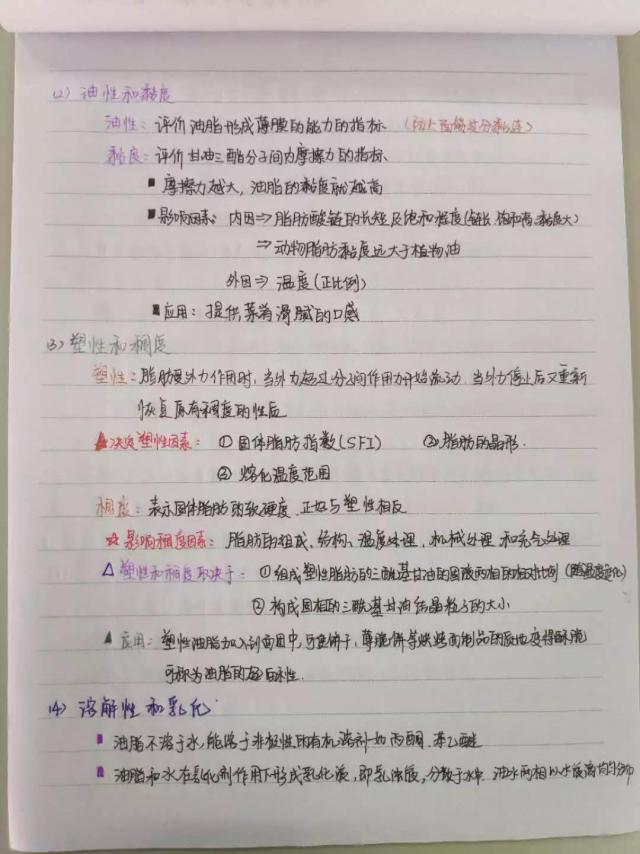 (2) 油性和黏度
油性：评价油脂形成薄膜的能力的指标 (防止面筋过分黏连)
黏度：评价甘油三酯分子间内摩擦力的指标、
摩擦力越大，油脂的黏度就越高
影响因素：内因⇒脂肪酸链的长短及饱和程度(链长、饱和高、黏度大)
⇒动物脂肪黏度远大于植物油
外因⇒温度(正比例)
应用：提供菜肴滑腻的口感
(3) 塑性和稠度
塑性：脂肪受外力作用时，当外力超过分子间作用力开始流动，当外力停止后又重新
恢复原有稠度的性质
决定塑性因素：①固体脂肪指数(SFI) ③脂肪的晶形.
②熔化温度范围
稠度：表示固体脂肪的软硬度，正好与塑性相反
☆影响稠度因素：脂肪的组成、结构、温度处理、机械处理和充气处理
△塑性和稠度取决于：①组成塑性脂肪的三酰基甘油的固液两相的相对比例(随温度变化)
②构成固相的三酰基甘油结晶粒子的大小
应用：塑性油脂加入到面团中，可使饼干，薄脆饼等烘烤面制品的质地变得酥脆
可称为油脂的起酥性.
(4) 溶解性和乳化
油脂不溶于水，能溶于非极性的有机溶剂如丙酮、苯乙醚
油脂和水在乳化剂作用下形成乳化液，即乳浊液，分散于水中，油水两相以水液滴均匀分布